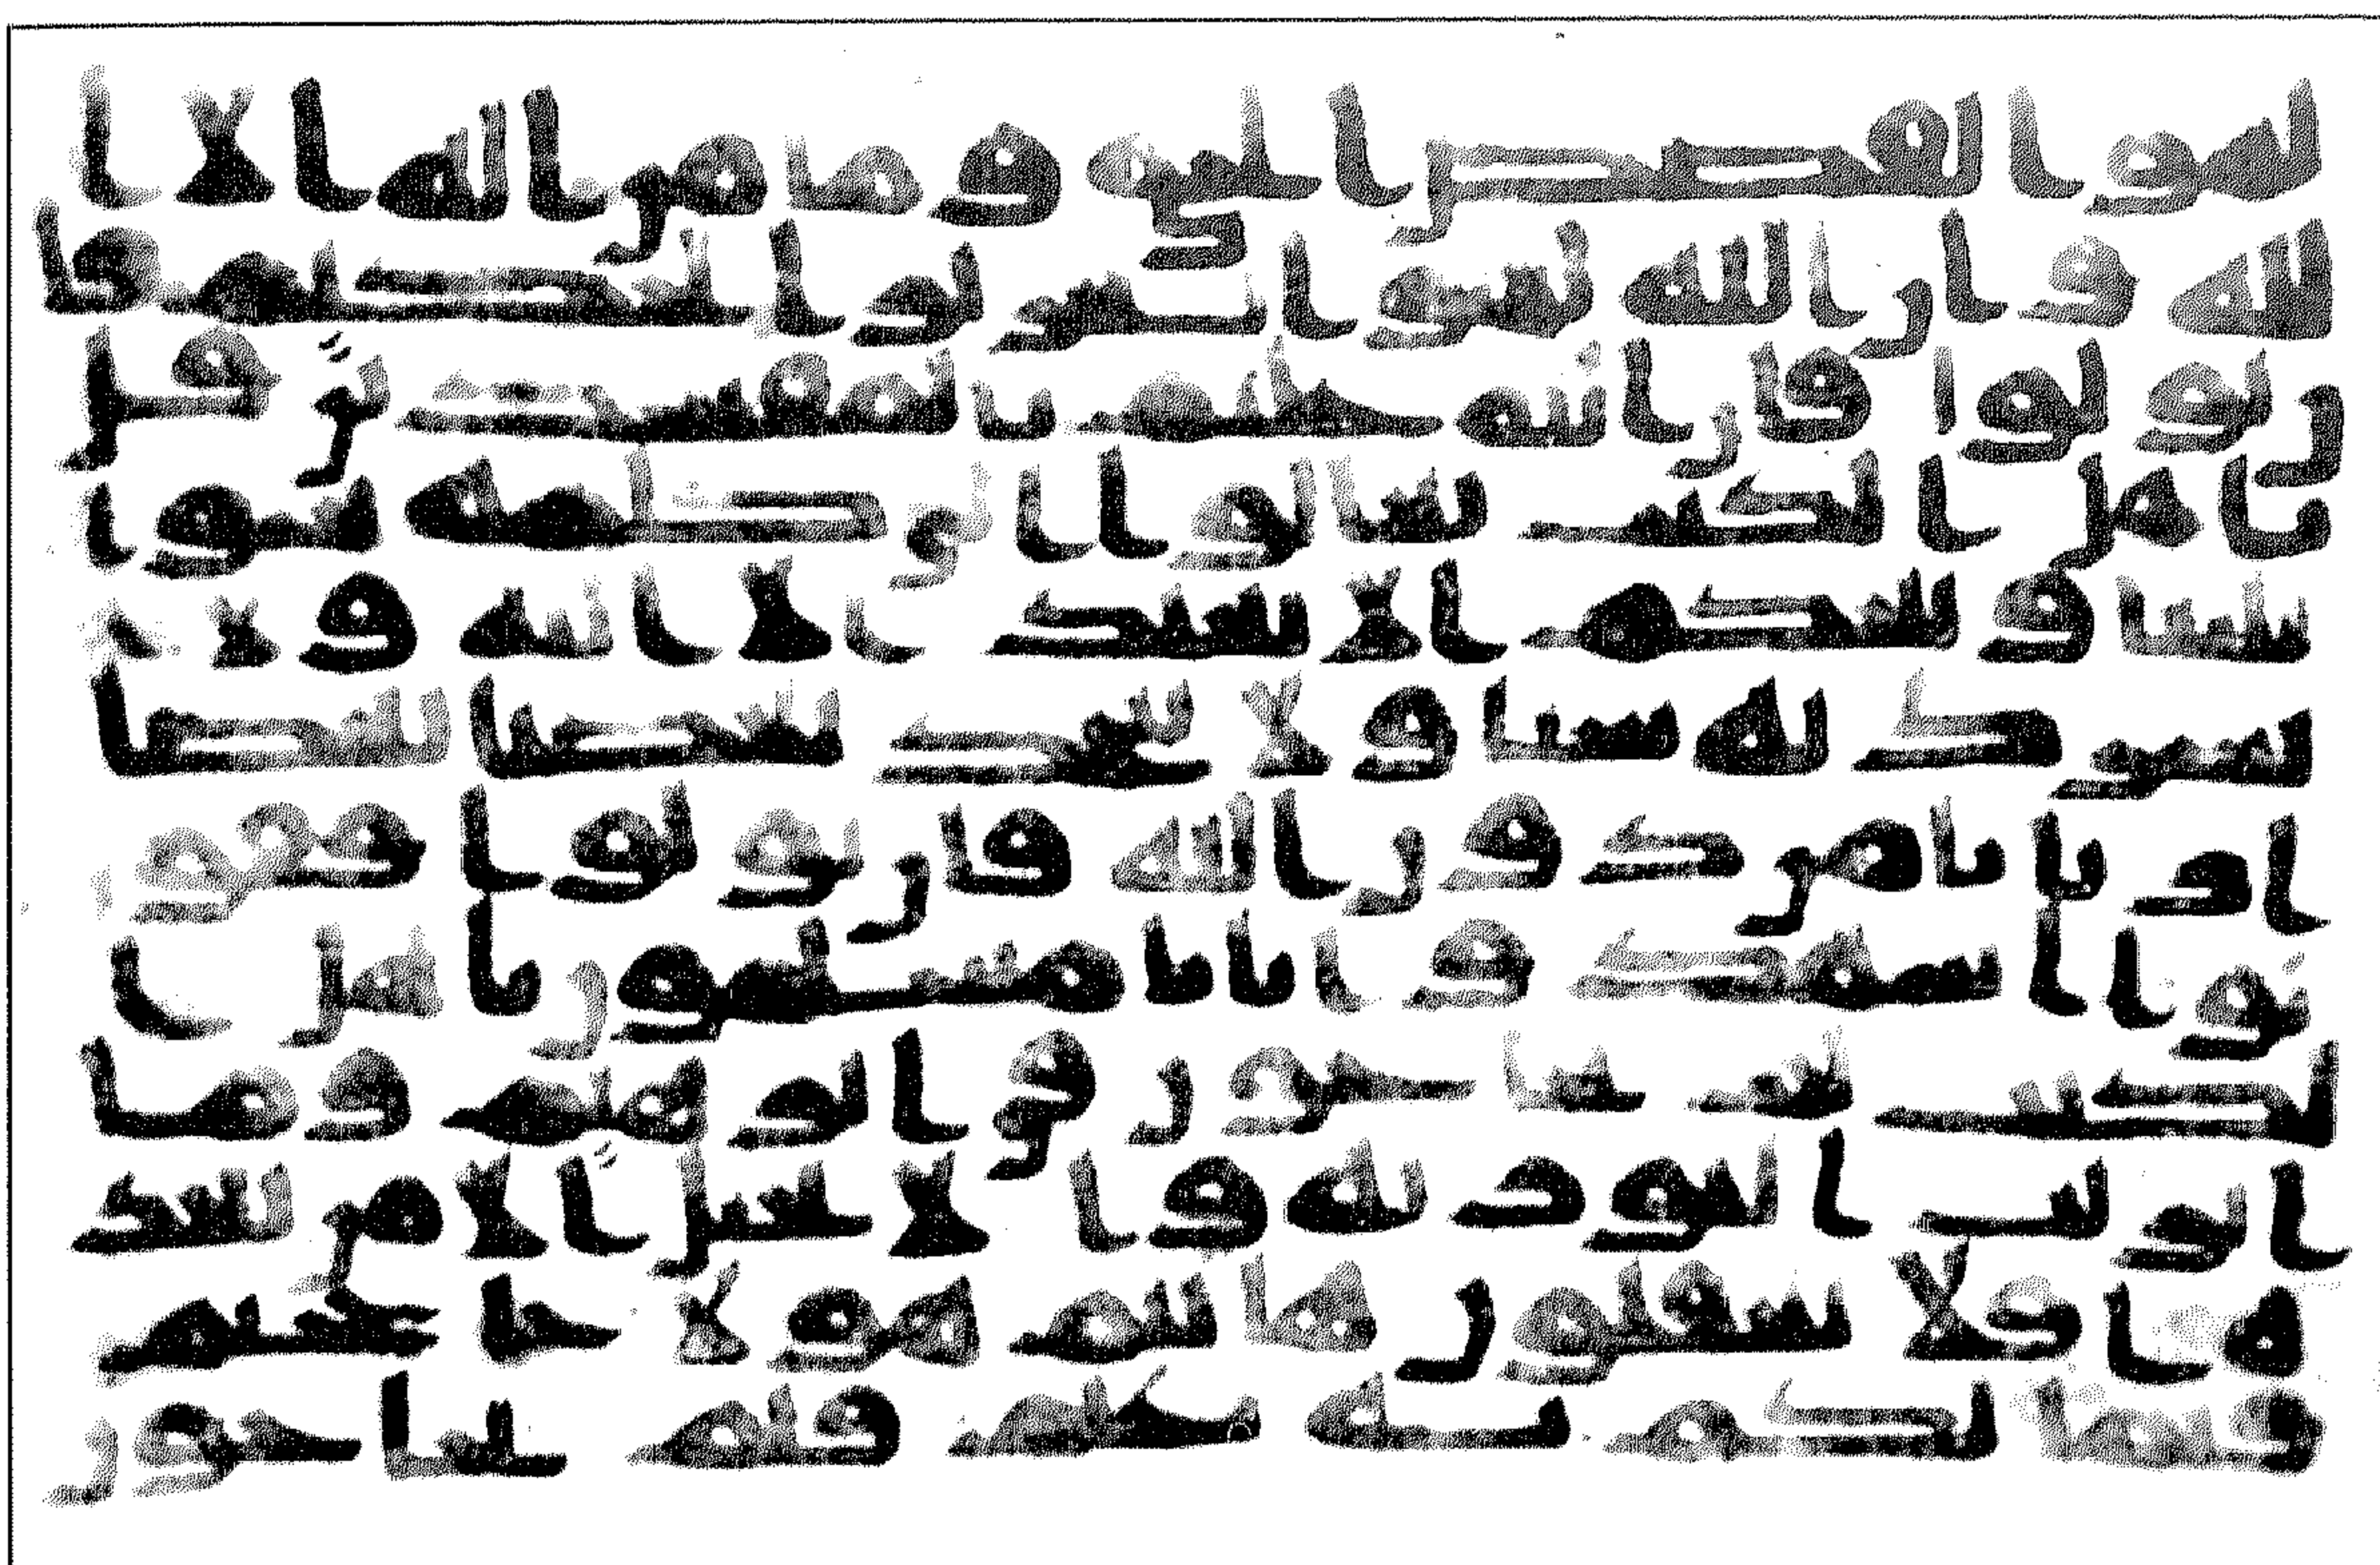 لهو القصص الحق وما من اله الا ا
لله وان الله لهو العزيز الحكيم فا
ن تولوا فان الله عليم بالمفسدين قل
ياهل الكتب تعالوا الى كلمة سوا
بيننا وبينكم الا نعبد الا الله ولا
نشرك به شيا ولا يتخذ بعضنا بعضا
اربابا من دون الله فان تولوا فقو
لوا اشهدوا بانا مسلمون ياهل ا
لكتب لم تحاجون في ابرهيم وما
انزلت التورية والا نجيل الا من بعد
ه افلا تعقلون هانتم هولا حججتم
فيما لكم به علم فلم تحاجون